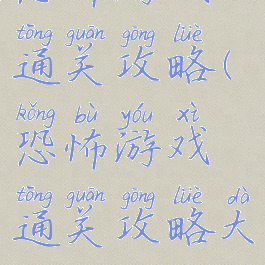 tōng guān gōng lüè
通关攻略(
kǒng bù yóu xì
恐怖游戏
tōng guān gōng lüè dà
通关攻略大